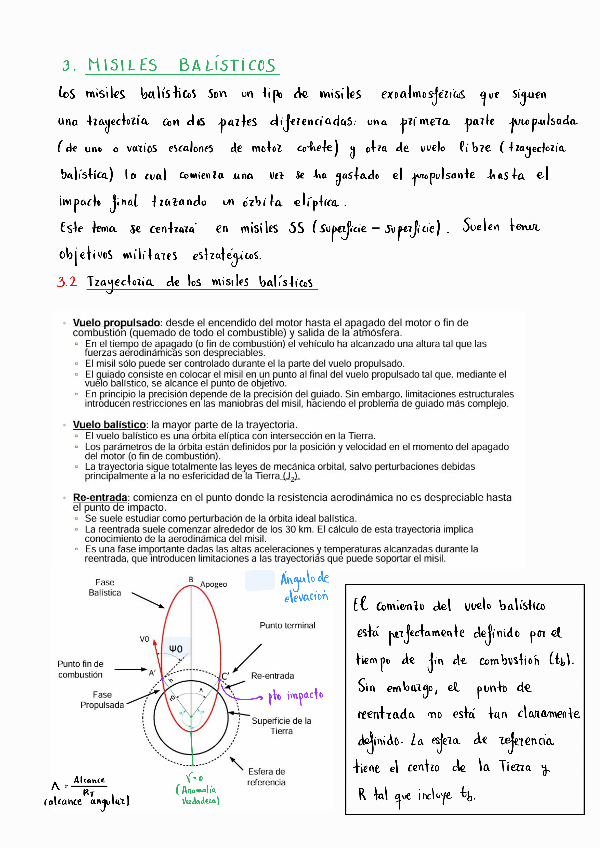 3. MISILES BALÍSTICOS
Los misiles balísticos son un tipo de misiles exoatmosféricos que siguen
una trayectoria con dos partes diferenciadas: una primera parte propulsada
(de uno o varios escalones de motor cohete) y otra de vuelo libre (trayectoria
balística) lo cual comienza una vez se ha gastado el propulsante hasta el
impacto final trazando un órbita elíptica.
Este tema se centrará en misiles SS (superficie - superficie). Suelen tener
objetivos militares estratégicos.
3.2 Trayectoria de los misiles balísticos
◦ Vuelo propulsado: desde el encendido del motor hasta el apagado del motor o fin de
combustión (quemado de todo el combustible) y salida de la atmósfera.
▫ En el tiempo de apagado (o fin de combustión) el vehículo ha alcanzado una altura tal que las
fuerzas aerodinámicas son despreciables.
▫ El misil sólo puede ser controlado durante el la parte del vuelo propulsado.
▫ El guiado consiste en colocar el misil en un punto al final del vuelo propulsado tal que, mediante el
vuelo balístico, se alcance el punto de objetivo.
▫ En principio la precisión depende de la precisión del guiado. Sin embargo, limitaciones estructurales
introducen restricciones en las maniobras del misil, haciendo el problema de guiado más complejo.
◦ Vuelo balístico: la mayor parte de la trayectoria.
▫ El vuelo balístico es una órbita elíptica con intersección en la Tierra.
▫ Los parámetros de la órbita están definidos por la posición y velocidad en el momento del apagado
del motor (o fin de combustión).
▫ La trayectoria sigue totalmente las leyes de mecánica orbital, salvo perturbaciones debidas
principalmente a la no esfericidad de la Tierra (J₂).
◦ Re-entrada: comienza en el punto donde la resistencia aerodinámica no es despreciable hasta
el punto de impacto.
▫ Se suele estudiar como perturbación de la órbita ideal balística.
▫ La reentrada suele comenzar alrededor de los 30 km. El cálculo de esta trayectoria implica
conocimiento de la aerodinámica del misil.
▫ Es una fase importante dadas las altas aceleraciones y temperaturas alcanzadas durante la
reentrada, que introducen limitaciones a las trayectorias que puede soportar el misil.
Fase
Balística
B
Apogeo
Ángulo de
elevación
Punto terminal
V0
Ψ0
Punto fin de
combustión
A'
C'
Re-entrada
pto impacto
Fase
Propulsada
Superficie de la
Tierra
Esfera de
referencia
Λ = Alcance
R_T
(alcance angular)
V=0
(Anomalía
verdadera)
El comienzo del vuelo balístico
está perfectamente definido por el
tiempo de fin de combustión (tb).
Sin embargo, el punto de
reentrada no está tan claramente
definido. La esfera de referencia
tiene el centro de la Tierra y
R tal que incluye tb.